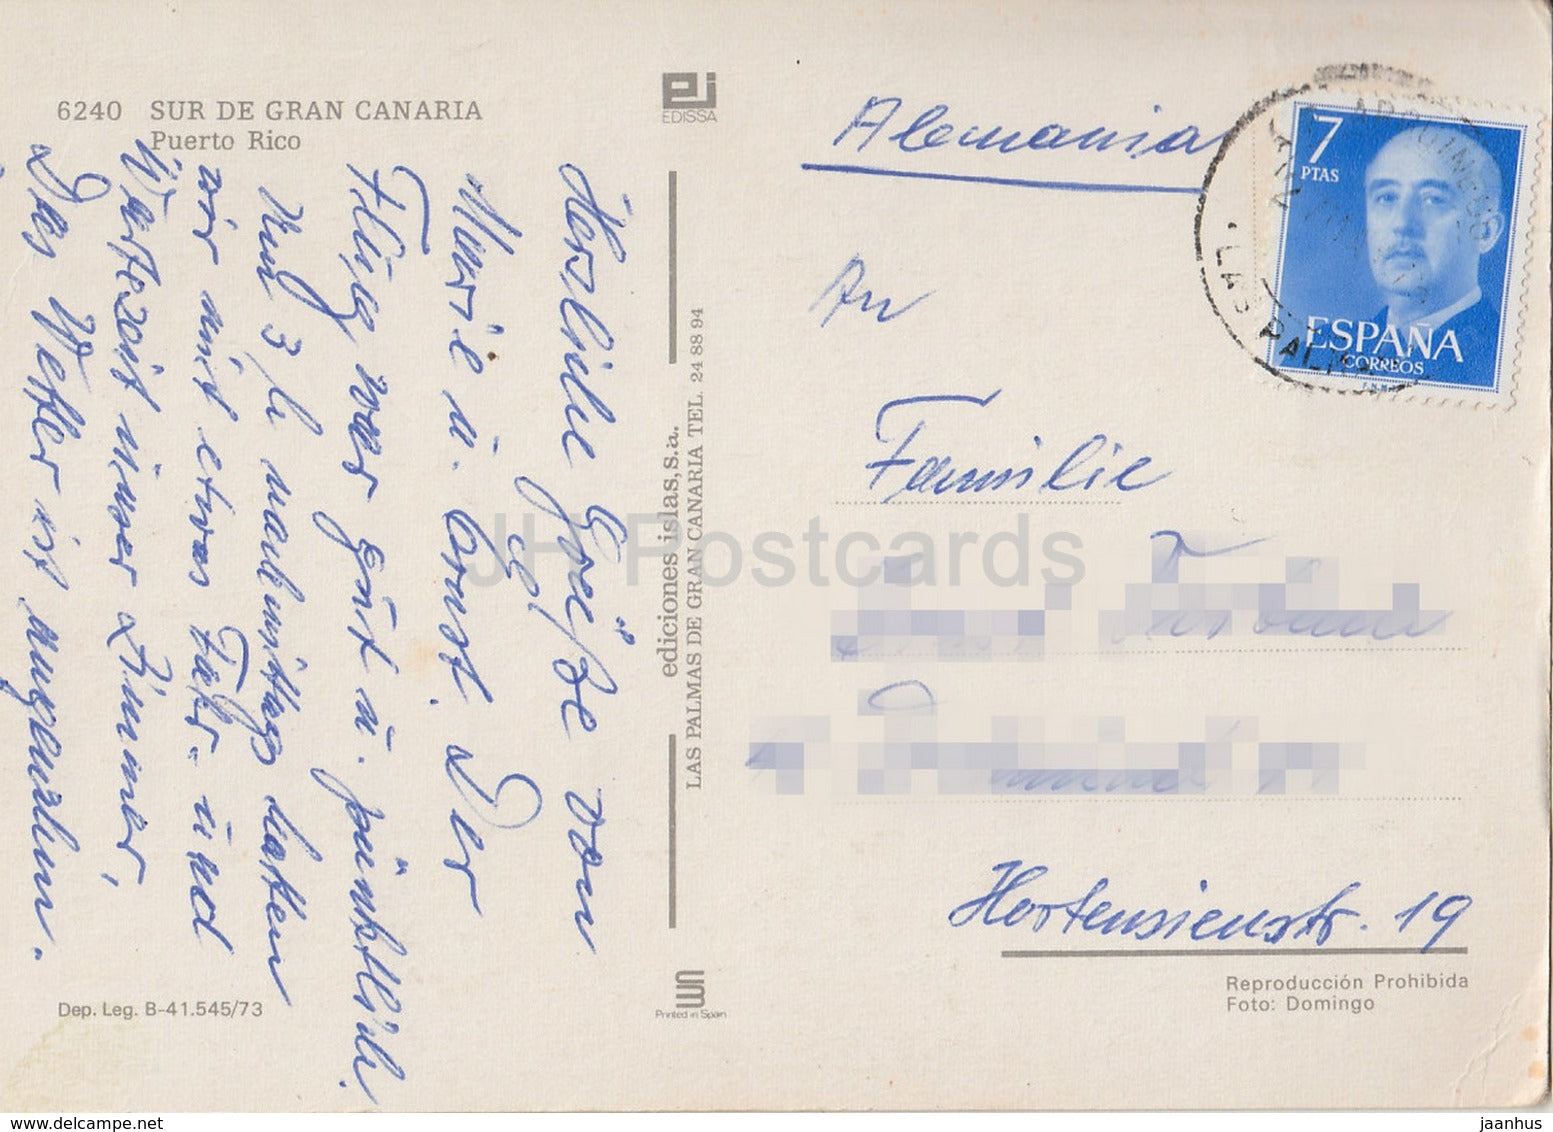 6240 SUR DE GRAN CANARIA
Puerto Rico
EDISSA
Herzliche Grüße von
Marie u. Ernst. Der
Flug war gut u. pünktlich.
Um 3 h nachmittag hatten
wir mit etwas Fahr- und
Wartezeit unser Zimmer,
Das Wetter ist angenehm.
ediciones islas, s.a.
LAS PALMAS DE GRAN CANARIA TEL. 24 88 94
Dep. Leg. B-41.545/73
Printed in Spain
Alemania
7
PTAS
ESPAÑA
CORREOS
F.N.M.T.
ARGUINEGUIN
LAS PALMAS
An
Familie
Hortensienstr. 19
Reproducción Prohibida
Foto: Domingo
JH Postcards
https://www.delcampe.net
jaanhus